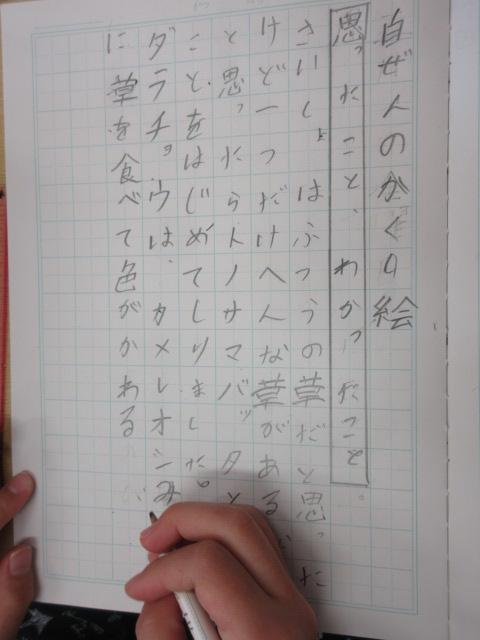 自ぜんのかくし絵
思ったこと、わかったこと
さいしょはふつうの草だと思った
けど一つだけへんな草がある
と思ったらトノサマバッタと
ことをはじめてしりました。
ダラチョウは、カメレオンみ
に草を食べて色がかわる